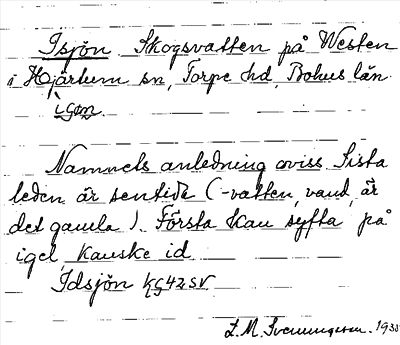 Isjön Skogsvatten på Westen
i Hjärtum sn, Torpe hd, Bohus län.
ìsjøn
Namnets anledning oviss Sista
leden är sentida (-vatten, vand, är
det gamla). Första kan syfta på
igel kanske id
Idsjön kg42 SV
L. M. Svenungsson. 1938